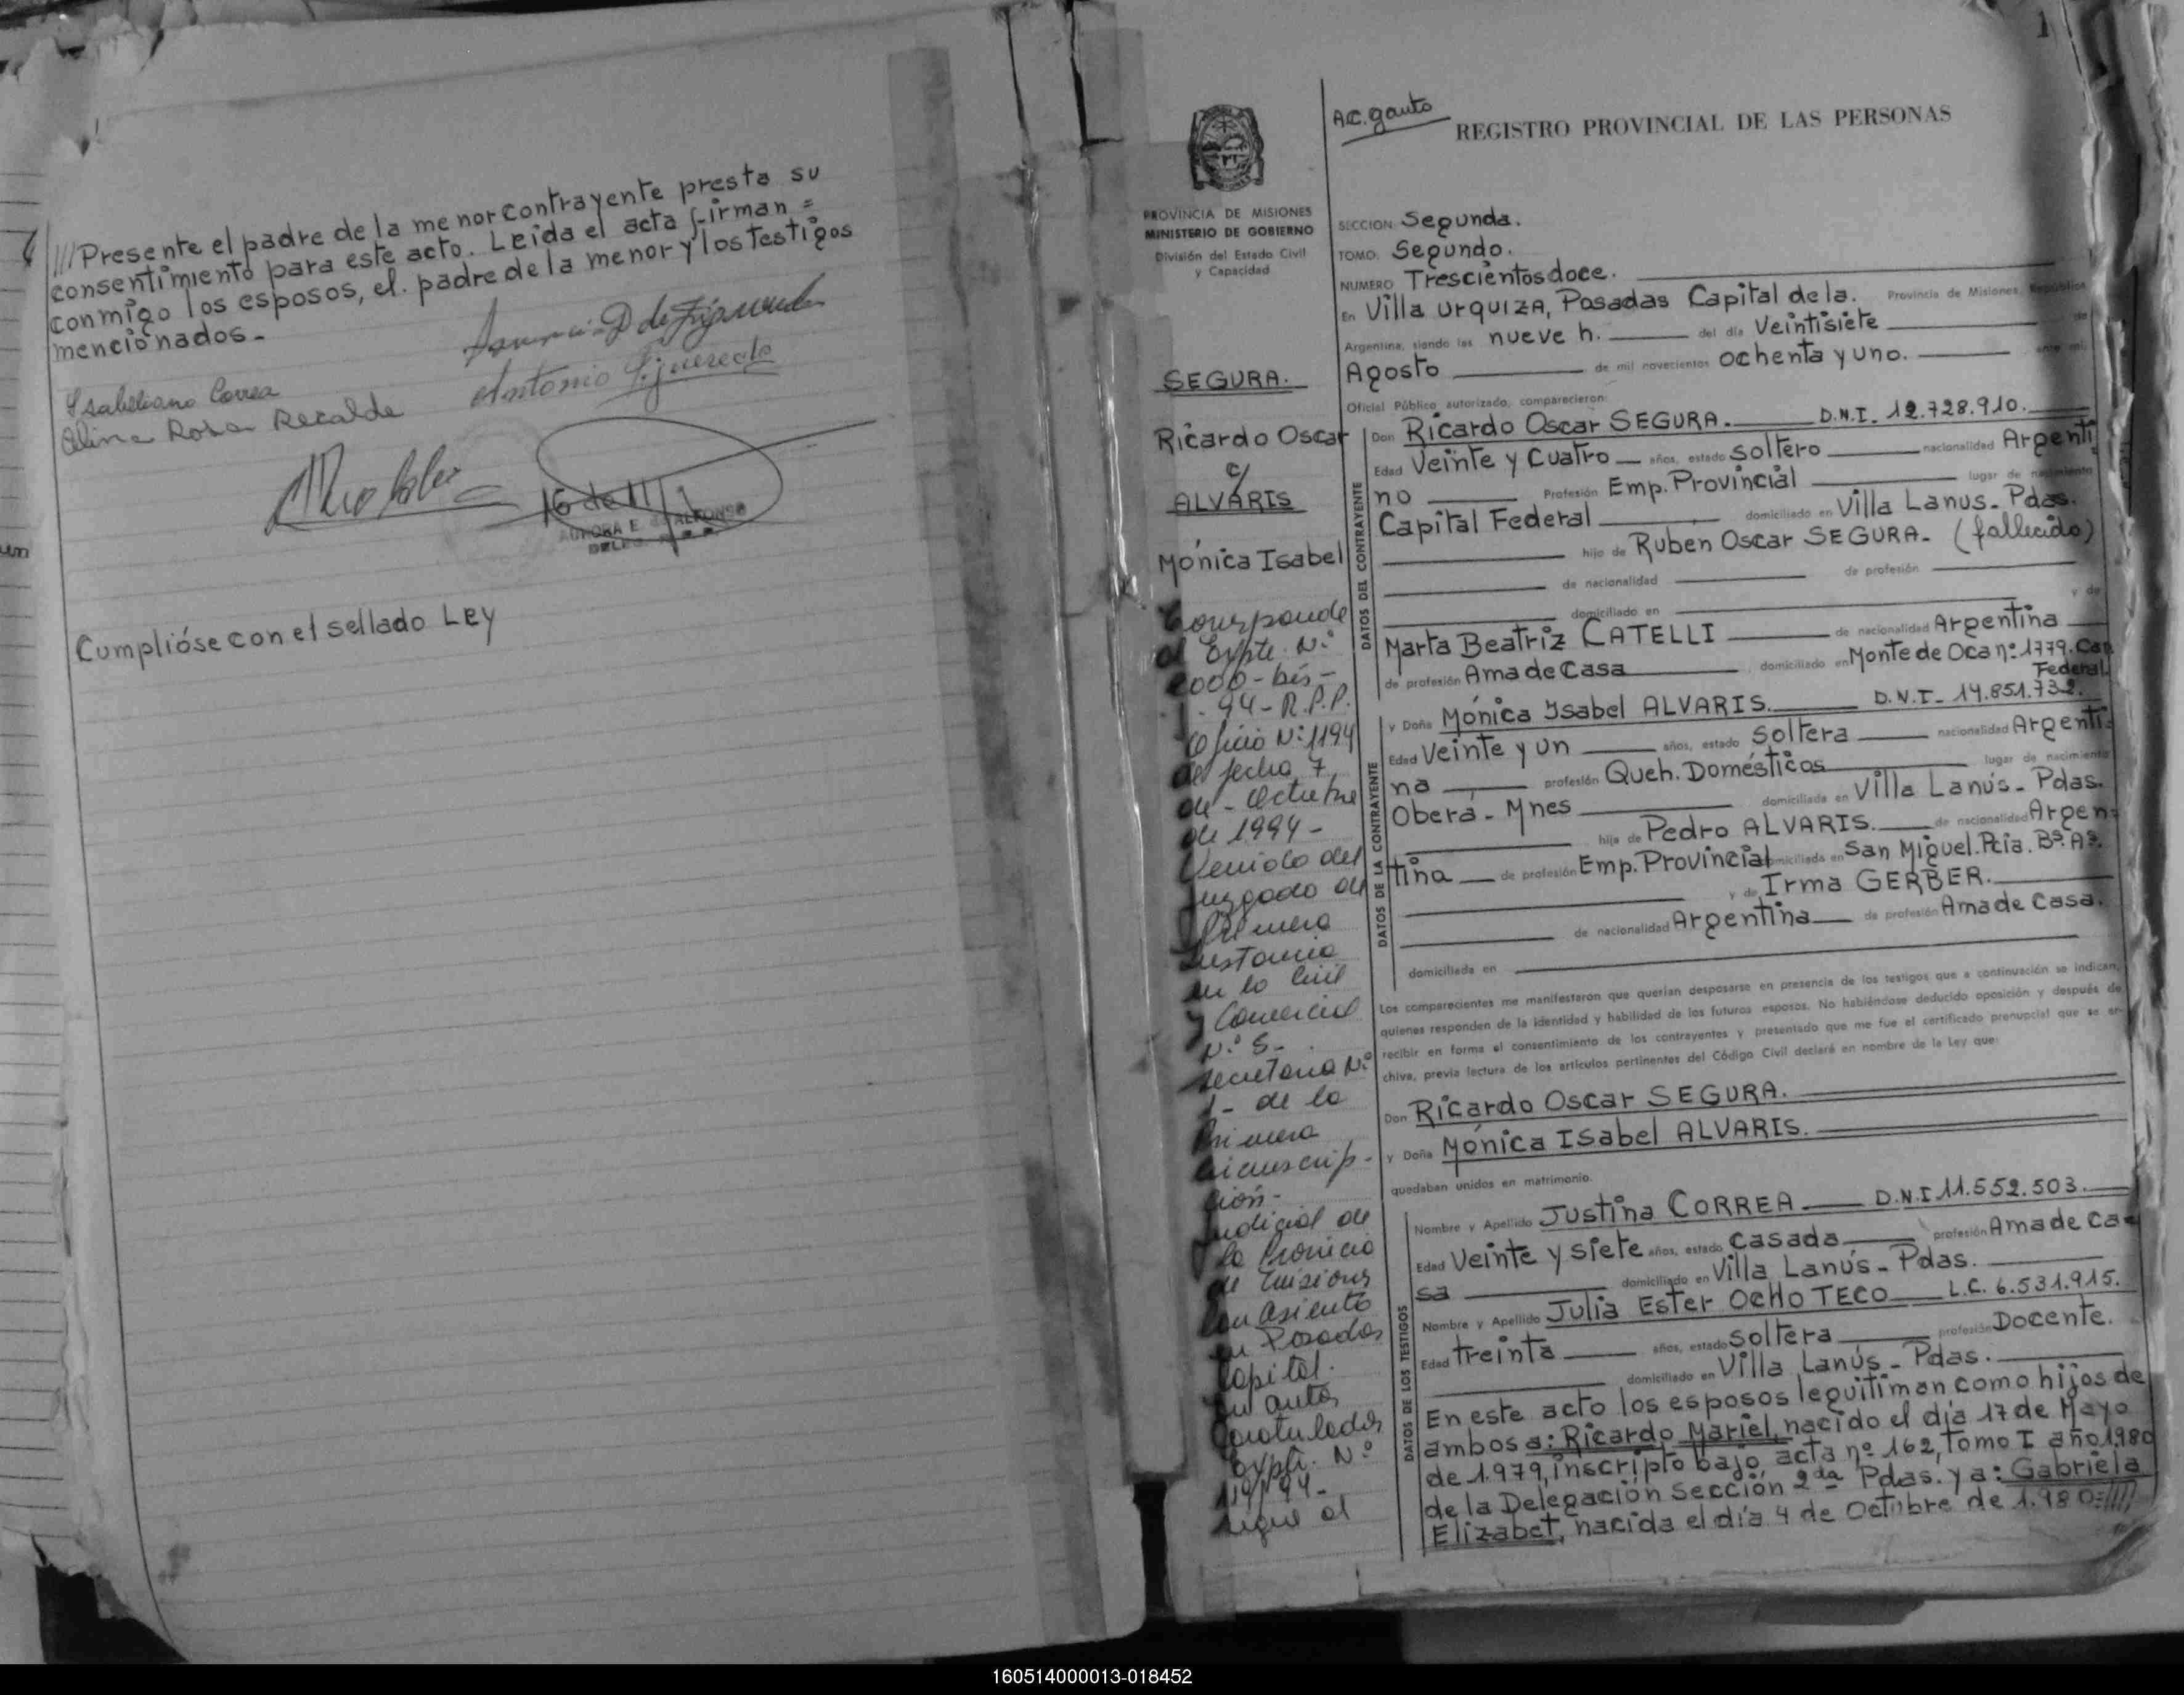 ///Presente el padre de la menor contrayente presta su
consentimiento para este acto. Leida el acta firman =
conmigo los esposos, el padre de la menor y los testigos
mencionados.-
Antonio Figueredo
Isabeliano Correa
Alina Rosa Recalde
16 de 11
AURORA E. de ALFONSO
Cumplióse con el sellado Ley
1
A.C. gauto
REGISTRO PROVINCIAL DE LAS PERSONAS
PROVINCIA DE MISIONES
MINISTERIO DE GOBIERNO
División del Estado Civil
y Capacidad
SEGURA.
Ricardo Oscar
c/
ALVARIS
Mónica Isabel
Corresponde
al Expte. Nº
2000-bis-
94-R.P.P.
Oficio Nº 1194
de fecha 7
de - Octubre
de 1994-
Venido del
Juzgado de
Primera
Instancia
en lo Civil
y Comercial
Nº 5-
Secretaria Nº
1- de la
Primera
Circunscrip-
ción-
Judicial de
la Provincia
de Misiones
con asiento
en Posadas
Capital.
en autos
caratulados
Expte. Nº
119/94-
sigue al
SECCION Segunda.
TOMO. Segundo.
NUMERO Trescientos doce.
En Villa Urquiza, Posadas Capital de la. Provincia de Misiones, República
Argentina, siendo las nueve h. del día Veintisiete de
Agosto de mil novecientos ochenta y uno. ante mí:
Oficial Público autorizado, comparecieron:
DATOS DEL CONTRAYENTE
Don Ricardo Oscar SEGURA. D.N.I. 12.728.910.
Edad Veinte y Cuatro años, estado soltero nacionalidad Argenti
no Profesión Emp. Provincial lugar de nacimiento
Capital Federal domiciliado en Villa Lanus - Pdas.
hijo de Rubén Oscar SEGURA- (fallecido)
de nacionalidad de profesión
domiciliado en y de
Marta Beatriz CATELLI de nacionalidad Argentina
de profesión Ama de Casa domiciliado en Monte de Oca nº 1779. Cap
Federal.
DATOS DE LA CONTRAYENTE
y Doña Mónica Isabel ALVARIS. D.N.I- 14.851.732.
Edad Veinte y un años, estado Soltera nacionalidad Argenti-
na profesión Queh. Domésticos lugar de nacimiento
Oberá - Mnes domiciliada en Villa Lanús - Pdas.
hija de Pedro ALVARIS. de nacionalidad Argen-
tina de profesión Emp. Provincial domiciliado en San Miguel. Pcia. Bs. As.
y de Irma GERBER.
de nacionalidad Argentina de profesión Ama de Casa.
domiciliada en
Los comparecientes me manifestaron que querían desposarse en presencia de los testigos que a continuación se indican,
quienes responden de la identidad y habilidad de los futuros esposos. No habiéndose deducido oposición y después de
recibir en forma el consentimiento de los contrayentes y presentado que me fue el certificado prenupcial que se ar-
chiva, previa lectura de los artículos pertinentes del Código Civil declaré en nombre de la Ley que:
Don Ricardo Oscar SEGURA.
y Doña Mónica Isabel ALVARIS.
quedaban unidos en matrimonio.
DATOS DE LOS TESTIGOS
Nombre y Apellido Justina CORREA D.N.I 11.552.503.
Edad Veinte y siete años, estado casada profesión Ama de Ca-
sa domiciliado en Villa Lanús - Pdas.
Nombre y Apellido Julia Ester OCHOTECO L.C. 6.531.915.
Edad treinta años, estado soltera profesión Docente.
domiciliado en Villa Lanús - Pdas.
En este acto los esposos leguitiman como hijos de
ambos a: Ricardo Mariel, nacido el día 17 de Mayo
de 1.979, inscripto bajo acta nº 162, Tomo I año 1980
de la Delegación Sección 2da Pdas. y a: Gabriela
Elizabet, nacida el día 4 de Octubre de 1.980=////
160514000013-018452